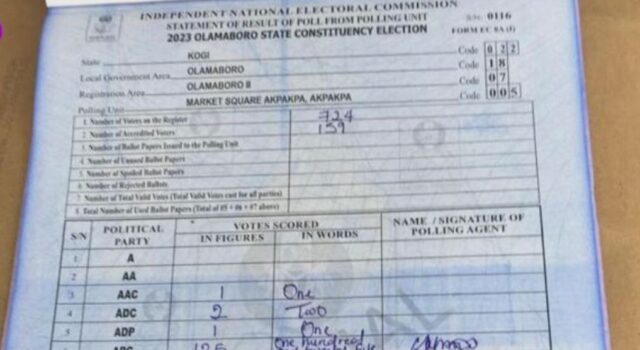 INDEPENDENT NATIONAL ELECTORAL COMMISSION
STATEMENT OF RESULT OF POLL FROM POLLING UNIT
2023 OLAMABORO STATE CONSTITUENCY ELECTION
S/No. 0116
FORM EC 8A (I)
State KOGI Code 022
Local Government Area OLAMABORO Code 18
Registration Area OLAMABORO II Code 07
Polling Unit MARKET SQUARE AKPAKPA, AKPAKPA Code 005
1. Number of Voters on the Register 724
2. Number of Accredited Voters 159
3. Number of Ballot Papers Issued to the Polling Unit
4. Number of Unused Ballot Papers
5. Number of Spoiled Ballot Papers
6. Number of Rejected Ballots
7. Number of Total Valid Votes (Total Valid Votes cast for all parties)
8. Total Number of Used Ballot Papers (Total of #5 + #6 + #7 above)
S/N POLITICAL PARTY VOTES SCORED NAME / SIGNATURE OF POLLING AGENT
IN FIGURES IN WORDS
1 A
2 AA
3 AAC 1 One
4 ADC 2 Two
5 ADP 1 One
One hundred